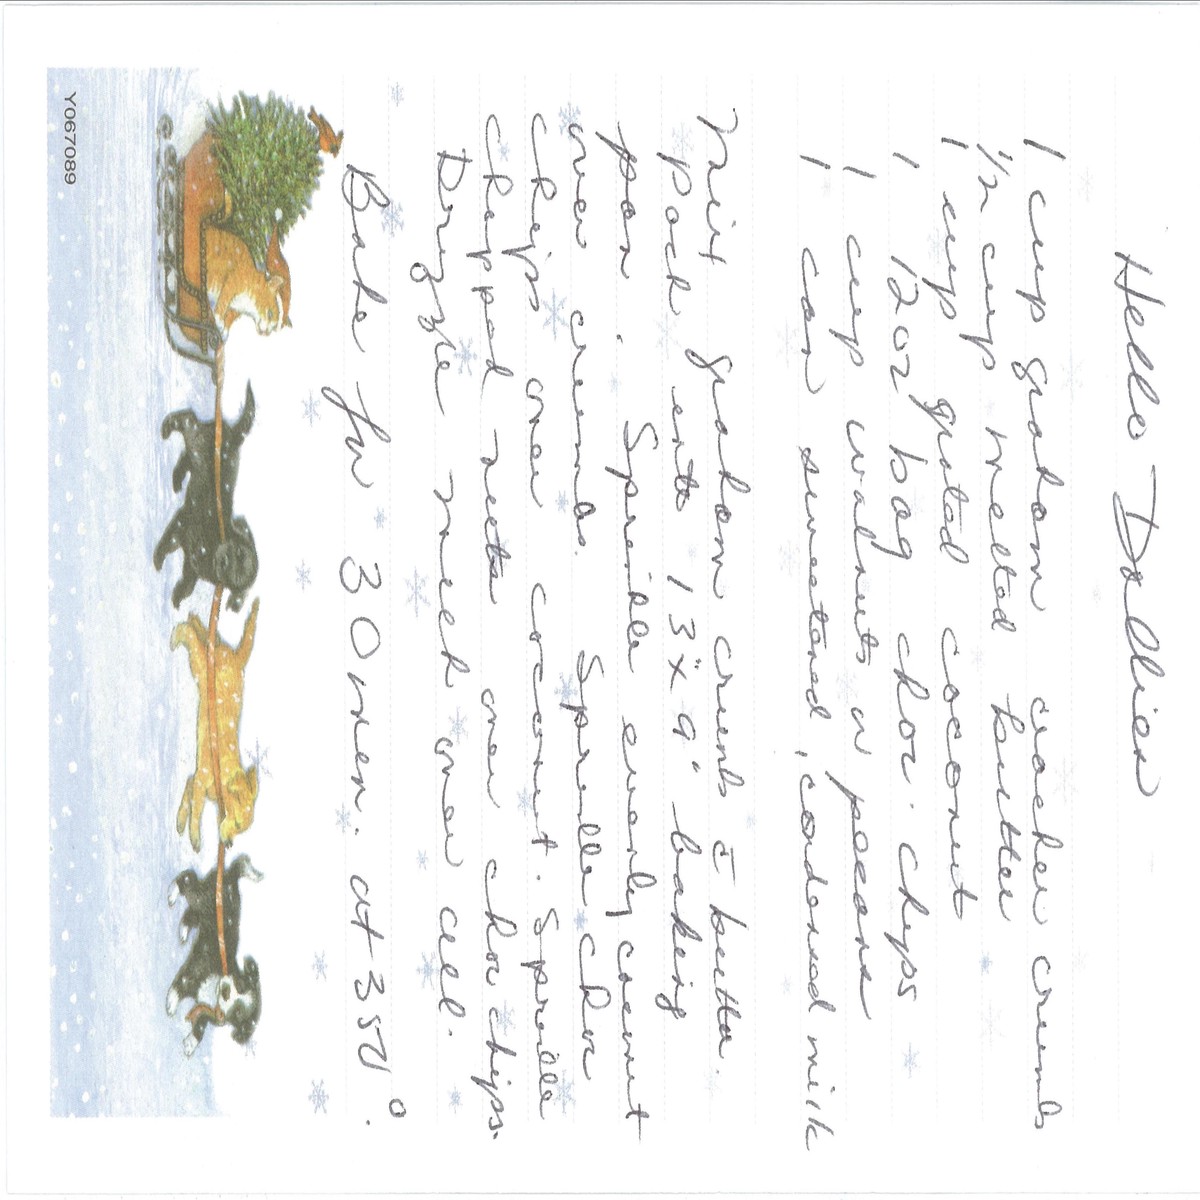 Hello Dollies
1 cup graham cracker crumbs
1/2 cup melted butter
1 cup grated coconut
1 12oz bag choc. chips
1 cup walnuts or pecans
1 can sweetened, condensed milk
Mix graham crumbs c̄ butter.
Pack into 13" x 9" baking
pan. Sprinkle evenly coconut
over crumbs. Sprinkle choc
chips over coconut. Sprinkle
chopped nuts over choc chips.
Drizzle milk over all.
Bake for 30 min. at 350°.
Y067089